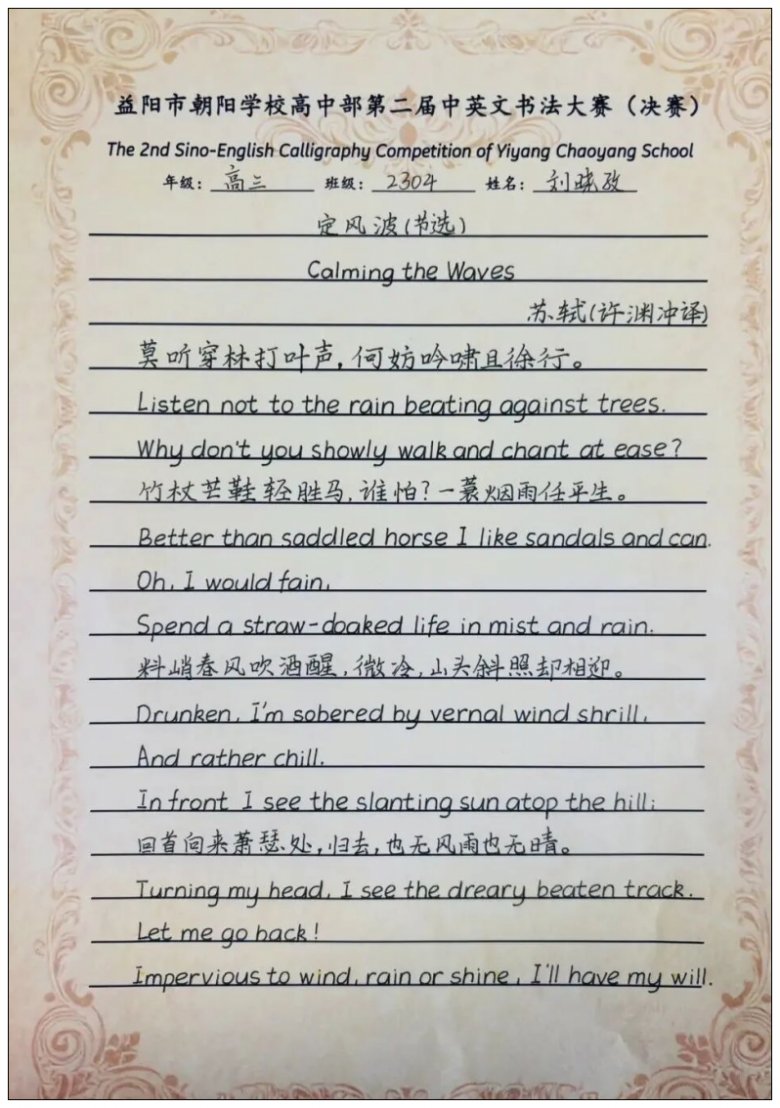 益阳市朝阳学校高中部第二届中英文书法大赛（决赛）
The 2nd Sino-English Calligraphy Competition of Yiyang Chaoyang School
年级：高三 班级：2304 姓名：刘晓孜
定风波(节选)
Calming the Waves
苏轼(许渊冲译)
莫听穿林打叶声，何妨吟啸且徐行。
Listen not to the rain beating against trees.
Why don't you showly walk and chant at ease?
竹杖芒鞋轻胜马，谁怕？一蓑烟雨任平生。
Better than saddled horse I like sandals and can.
Oh, I would fain,
Spend a straw-doaked life in mist and rain.
料峭春风吹酒醒，微冷，山头斜照却相迎。
Drunken, I'm sobered by vernal wind shrill,
And rather chill.
In front I see the slanting sun atop the hill;
回首向来萧瑟处，归去，也无风雨也无晴。
Turning my head, I see the dreary beaten track.
Let me go back!
Impervious to wind, rain or shine, I'll have my will.